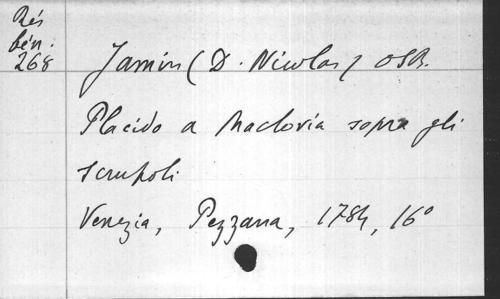 Rés
bén.
268
Jamin (D. Nicolas) OSB.
Placido a Maclovia sopra gli
scrupoli
Venezia, Pezzana, 1784, 16°